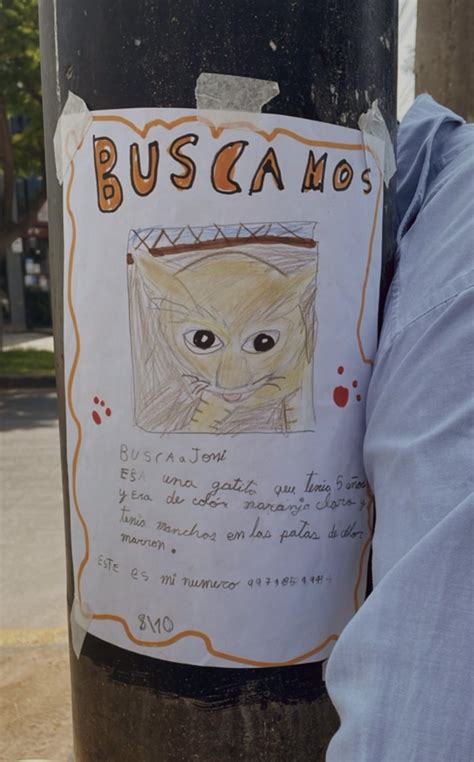 BUSCAMOS
BUSCA a Joni
ERA una gatita que tenia 5 años
y era de color naranja claro y
tenia manchas en las patas de color
marron.
ESTE es mi numero
8\10